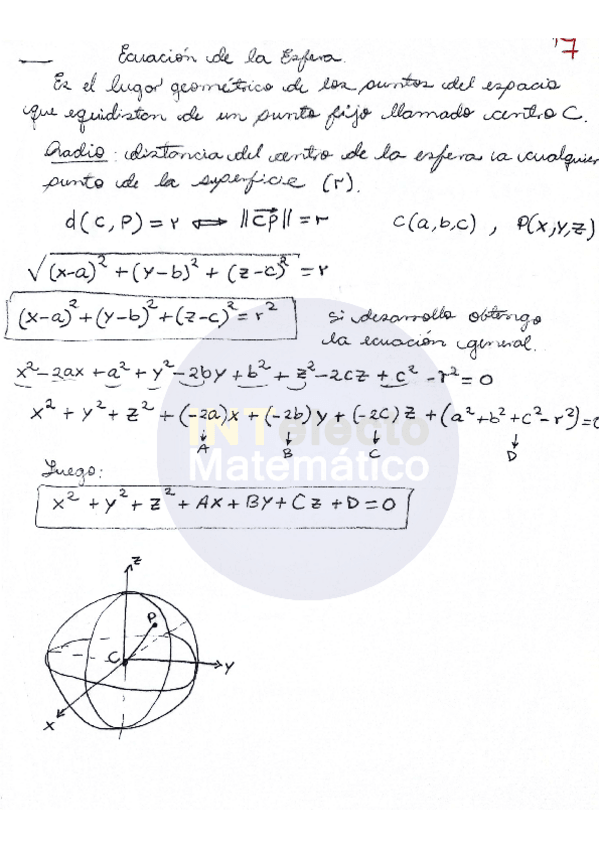 17
Ecuación de la Esfera.
Es el lugar geométrico de los puntos del espacio
que equidistan de un punto fijo llamado centro C.
Radio: distancia del centro de la esfera a cualquier
punto de la superficie (r).
d(C,P) = r ⟺ ||CP⃗|| = r C(a,b,c) , P(x,y,z)
√((x-a)² + (y-b)² + (z-c)²) = r
(x-a)² + (y-b)² + (z-c)² = r² si desarrollo obtengo
la ecuación general.
x² - 2ax + a² + y² - 2by + b² + z² - 2cz + c² - r² = 0
x² + y² + z² + (-2a)x + (-2b)y + (-2c)z + (a² + b² + c² - r²) = 0
↓ ↓ ↓ ↓
A B C D
INTelecto
Matemático
Luego:
x² + y² + z² + Ax + By + Cz + D = 0
z
P
C
y
x